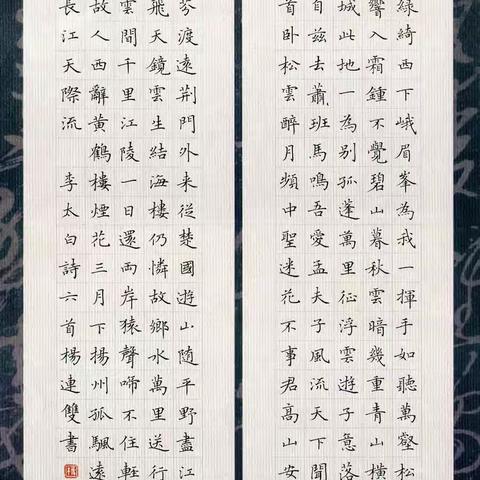 綠綺西下峨眉峯為我一揮手如聽萬壑松
響入霜鍾不覺碧山暮秋雲暗幾重青山橫
城此地一為別孤蓬萬里征浮雲遊子意落
自茲去蕭班馬鳴吾愛孟夫子風流天下聞
首卧松雲醉月頻中聖迷花不事君高山安
芬渡遠荊門外来從楚國遊山隨平野盡江
飛天鏡雲生結海樓仍憐故鄉水萬里送行
雲間千里江陵一日還兩岸猿聲啼不住輕
故人西辭黃鶴樓煙花三月下揚州孤颿遠
長江天際流 李太白詩六首楊連雙書